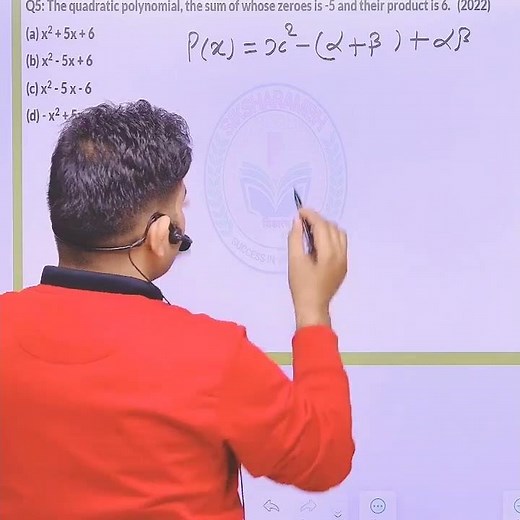 Q5: The quadratic polynomial, the sum of whose zeroes is -5 and their product is 6. (2022)
(a) x² + 5x + 6
P(x) = x² - (α + β ) + αβ
(b) x² - 5x + 6
(c) x² - 5 x - 6
(d) - x² + 5
SUCCESS